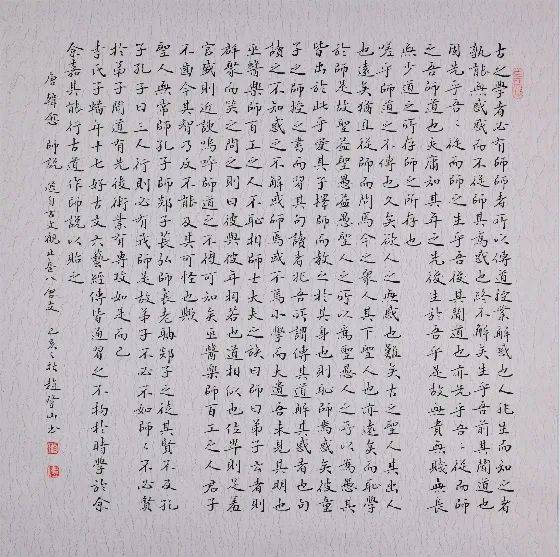 古之學者必有師師者所以傳道授業解惑也人非生而知之者
孰能無惑惑而不從師其為惑也終不解矣生乎吾前其聞道也
固先乎吾〻從而師之生乎吾後其聞道也亦先乎吾〻從而師
之吾師道也夫庸知其年之先後生於吾乎是故無貴無賤無長
無少道之所存師之所存也
嗟乎師道之不傳也久矣欲人之無惑也難矣古之聖人其出人
也遠矣猶且從師而問焉今之眾人其下聖人也亦遠矣而恥學
於師是故聖益聖愚益愚聖人之所以為聖愚人之所以為愚其
皆出於此乎愛其子擇師而教之於其身也則恥師焉惑矣彼童
子之師授之書而習其句讀者非吾所謂傳其道解其惑者也句
讀之不知惑之不解或師焉或不焉小學而大遺吾未見其明也
巫醫樂師百工之人不恥相師士大夫之族曰師曰弟子云者則
群聚而笑之問之則曰彼與彼年相若也道相似也位卑則足羞
官盛則近諛嗚呼師道之不復可知矣巫醫樂師百工之人君子
不齒今其智乃反不能及其可怪也歟
聖人無常師孔子師郯子萇弘師襄老聃郯子之徒其賢不及孔
子孔子曰三人行則必有我師是故弟子不必不如師〻不必賢
於弟子聞道有先後術業有專攻如是而已
李氏子蟠年十七好古文六藝經傳皆通習之不拘於時學於余
余嘉其能行古道作師說以貽之
唐韓愈師說 選自古文觀止卷八唐文 己亥之秋趙登山書